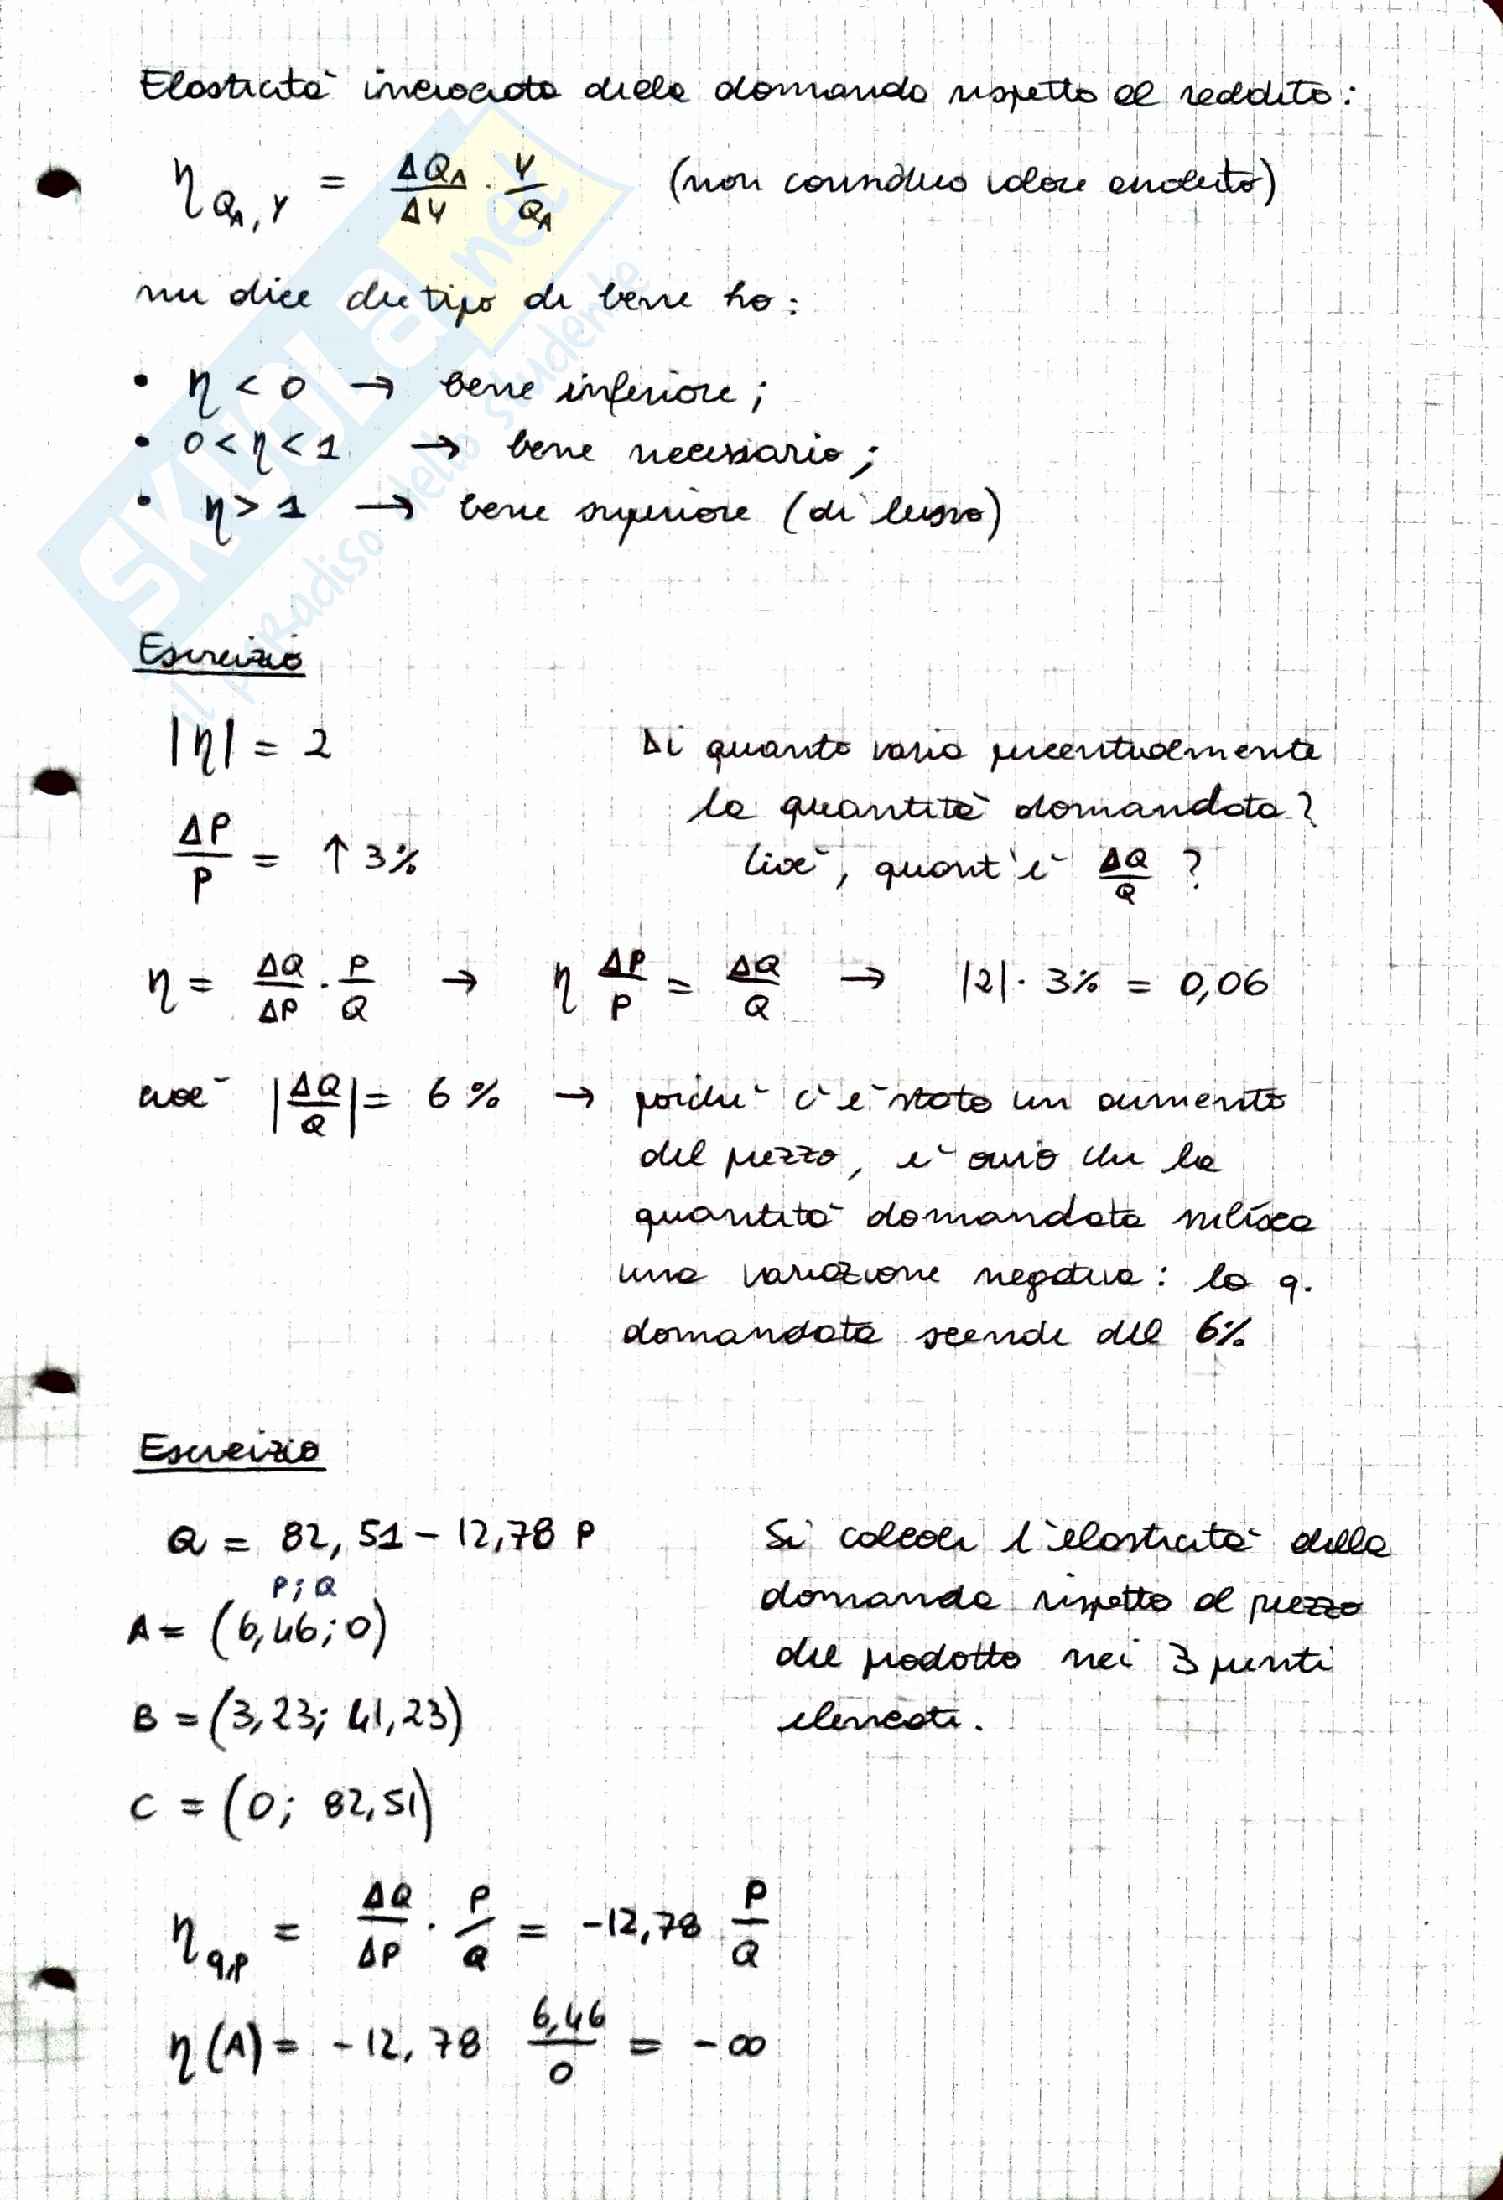 Elasticità incrociata della domanda rispetto al reddito:
η Q_A, Y = ΔQ_A/ΔY · Y/Q_A (non considero valore assoluto)
mi dice che tipo di bene ho:
• η < 0 → bene inferiore;
• 0 < η < 1 → bene necessario;
• η > 1 → bene superiore (di lusso)
Esercizio
|η| = 2 Di quanto varia percentualmente
la quantità domandata?
ΔP/P = ↑ 3% Cioè, quant'è ΔQ/Q ?
η = ΔQ/ΔP · P/Q → η ΔP/P = ΔQ/Q → |2| · 3% = 0,06
cioè |ΔQ/Q| = 6% → poiché c'è stato un aumento
del prezzo, è ovvio che la
quantità domandata subisca
una variazione negativa: la q.
domandata scende del 6%
Esercizio
Q = 82,51 - 12,78 P Si calcoli l'elasticità della
P; Q
A = (6,46; 0) domanda rispetto al prezzo
del prodotto nei 3 punti
B = (3,23; 41,23) elencati.
C = (0; 82,51)
η q,p = ΔQ/ΔP · P/Q = -12,78 P/Q
η (A) = -12,78 6,46/0 = -∞
SKUOLA.net
il paradiso dello studente